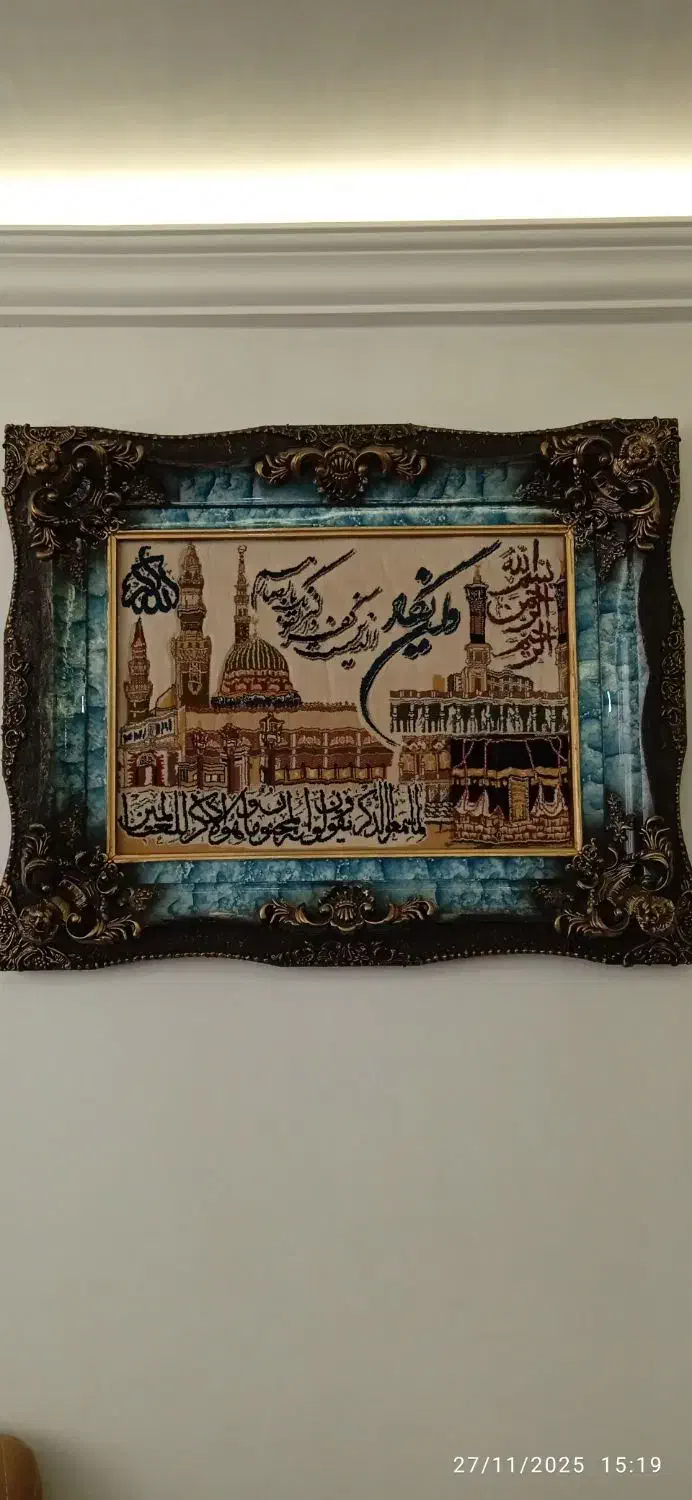 بسم الله الرحمن الرحيم
وإن يكاد
الذين كفروا ليزلقونك بأبصارهم
لما سمعوا الذكر ويقولون إنه لمجنون وما هو إلا ذكر للعالمين
27/11/2025 15:19